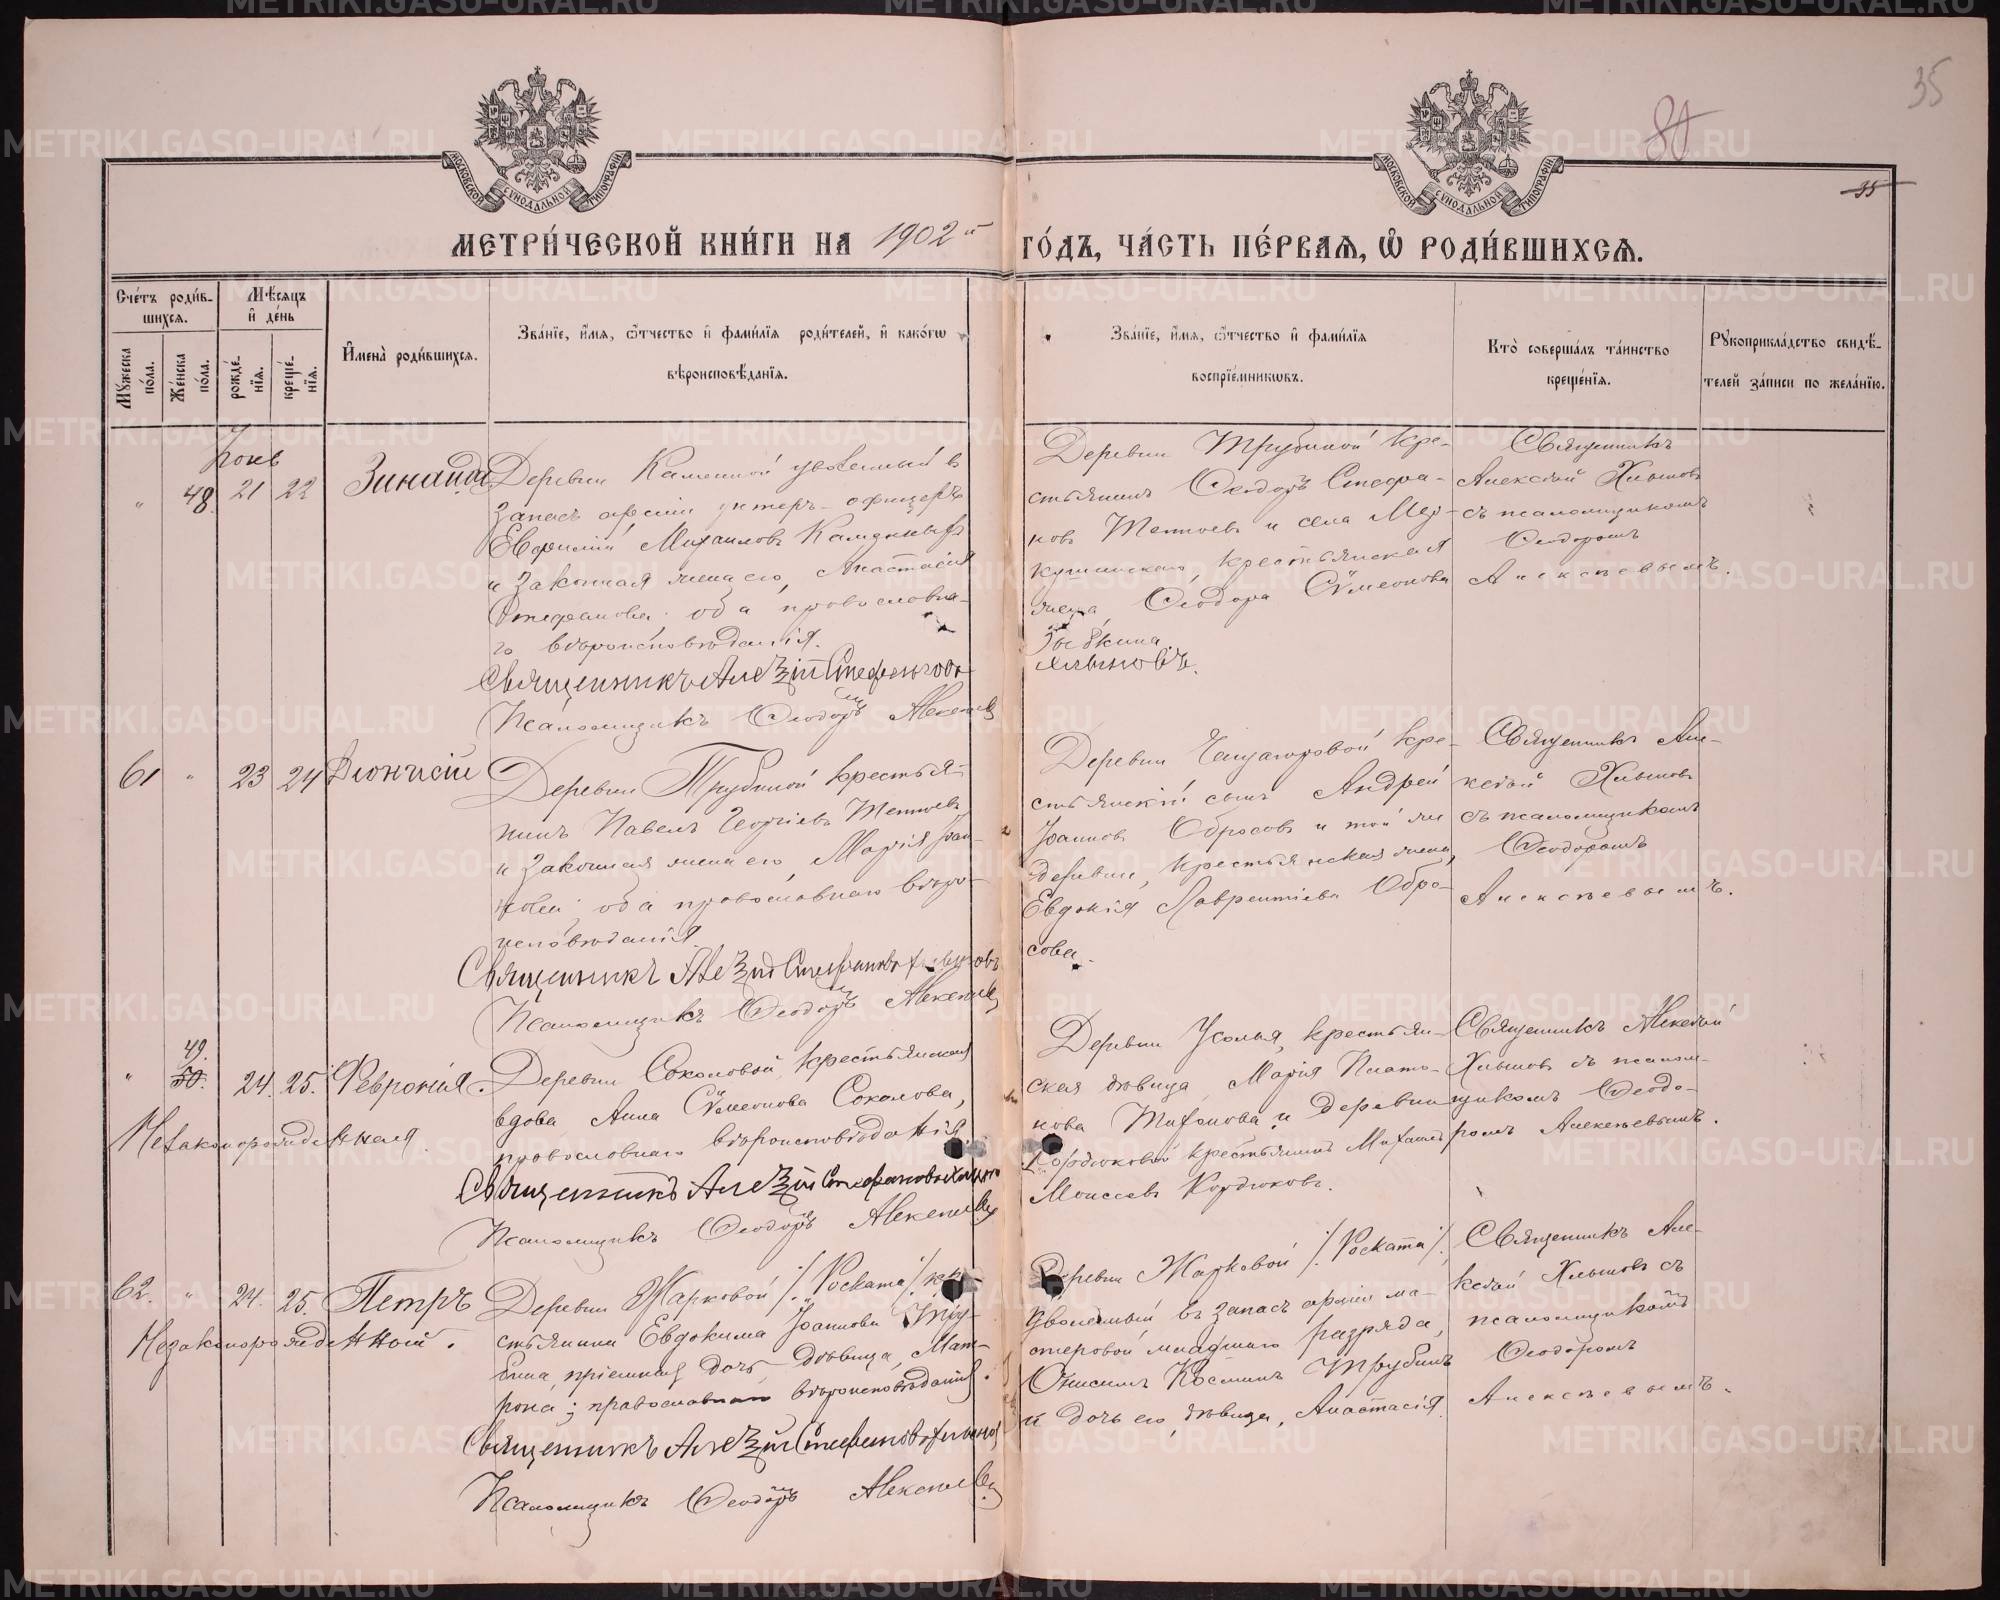 35
80
35
МОСКОВСКОЙ СѴНОДАЛЬНОЙ ТИПОГРАФІИ
МОСКОВСКОЙ СѴНОДАЛЬНОЙ ТИПОГРАФІИ
МЕТРИ́ЧЕСКОЙ КНИ́ГИ НА 1902й ГО́ДЪ, ЧА́СТЬ ПЕ́РВАЯ, Ѽ РОДИ́ВШИХСЯ.
Сче́тъ роди́в-
шихся.
Мѣ́сяцъ
и де́нь
Мꙋ́жеска по́ла.
Же́нска по́ла.
рожде́нїя.
креще́нїя.
И҆мена̀ роди́вшихся.
Зва́нїе, и҆́мя, ѻ҆́тчество и҆ фами́лїя роди́телей, и҆ како́гѡ
вѣроисповѣ́данїя.
Зва́нїе, и҆́мя, ѻ҆́тчество и҆ фами́лїя
воспрїе́мникѡвъ.
Кто̀ соверша́лъ та́инство
креще́нїя.
Рꙋкоприкла́дство свидѣ́-
телей за́писи по жела́нїю.
Іюнь
" 48. 21 22 Зинаида.
Деревни Каменной уволенный въ
запасъ арміи унтеръ-офицеръ
Евфимій Михаиловъ Каменныхъ
и законная жена его, Анастасія
Стефанова; оба православна-
го вѣроисповѣданія.
Священникъ Алексій Стефановъ
Хлыновъ.
Псаломщикъ Ѳеодоръ Алексѣевъ
Деревни Трубиной кре-
стьянинъ Ѳеодоръ Стефа-
новъ и села Мер-
кушинскаго, крестьянская
жена, Ѳеодора Сѷмеонова
Зыбкина
Священникъ
Алексѣй Хлыновъ
съ псаломщикомъ
Ѳеодоромъ
Алексѣевымъ.
61 " 23 24 Діонисій
Деревни Трубиной крестья-
нинъ Павелъ Георгіевъ
и законная жена его, Марія Іоан-
нова; оба православнаго вѣро-
исповѣданія.
Священникъ Алексій Стефановъ Хлыновъ
Псаломщикъ Ѳеодоръ Алексѣевъ
Деревни кре-
стьянскій сынъ Андрей
Іоанновъ Обросовъ и той же
деревни, крестьянская жена,
Евдокія Лаврентіева Обро-
сова.
Священникъ Але-
ксѣй Хлыновъ
съ псаломщикомъ
Ѳеодоромъ
Алексѣевымъ.
49.
" 50. 24. 25. Феврон­ія.
Незаконорожденная.
Деревни Соколовой, крестьянская
вдова Анна Сѷмеонова Соколова,
православнаго вѣроисповѣданія.
Священникъ Алексій Стефановъ Хлыновъ
Псаломщикъ Ѳеодоръ Алексѣевъ
Деревни Усолья, крестьян-
ская дѣвица, Марія Плато-
нова и деревни
Кордюковой крестьянинъ Михаилъ
Моисеевъ Кордюковъ.
Священникъ Алексѣй
Хлыновъ съ псалом-
щикомъ Ѳеодо-
ромъ Алексѣевымъ.
62. " 24. 25. Петръ
Незаконорожденный.
Деревни Жарковой /Роската/ кре-
стьянина Евдокима Іоаннова Тру-
бина, пріемная дочь дѣвица, Мат-
рона; православнаго вѣроисповѣданія.
Священникъ Алексій Стефановъ Хлыновъ
Псаломщикъ Ѳеодоръ Алексѣевъ
Деревни Жарковой /Роската/,
уволенный въ запасъ арміи ма-
стеровой младшаго разряда,
Онисимъ Космичъ Трубинъ
и дочь его, дѣвица, Анастасія.
Священникъ Але-
ксѣй Хлыновъ съ
псаломщикомъ
Ѳеодоромъ
Алексѣевымъ.
METRIKI.GASO-URAL.RU